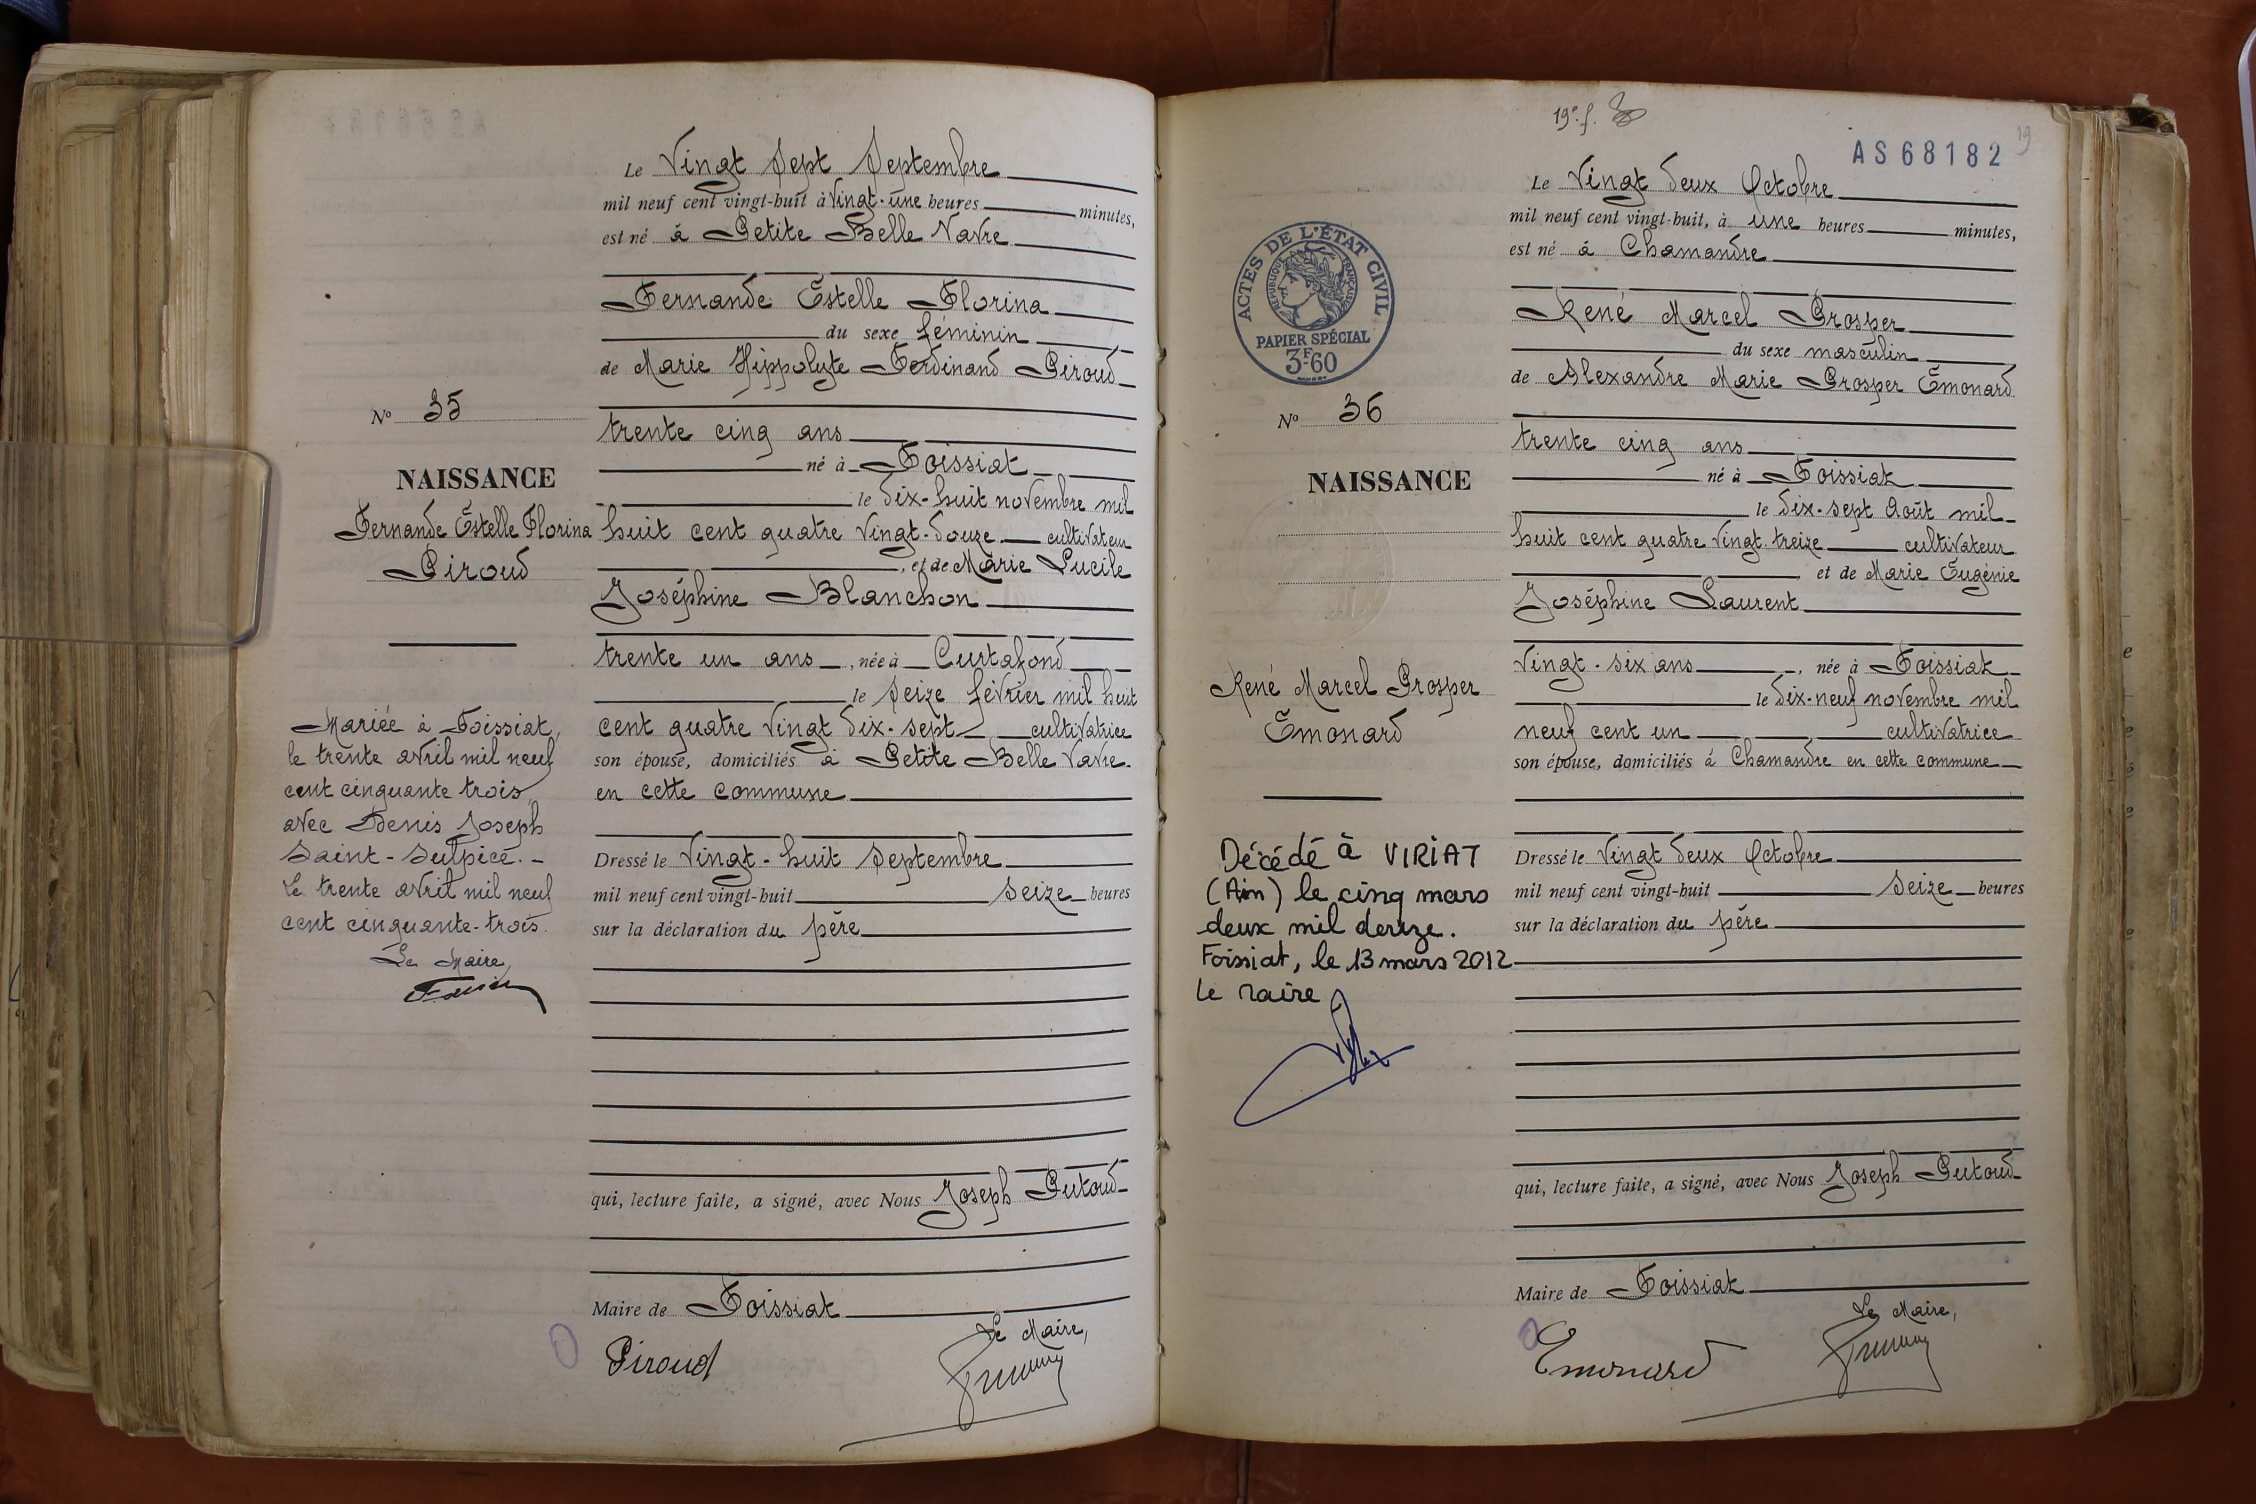 Le Vingt Sept Septembre
mil neuf cent vingt-huit à Vingt-une heures minutes,
est né à Petite Belle Vavre
Fernande Estelle Florina
du sexe féminin
de Marie Hippolyte Ferdinand Piroud
No 35
trente cinq ans
né à Foissiat
NAISSANCE
le dix-huit novembre mil
Fernande Estelle Florina
huit cent quatre Vingt-douze cultivateur
Piroud
, et de Marie Lucile
Joséphine Blanchon
trente un ans , née à Curtafond
le Seize février mil huit
cent quatre Vingt dix-sept cultivatrice
son épouse, domiciliés à Petite Belle Vavre
en cette commune
Mariée à Foissiat,
le trente avril mil neuf
cent cinquante trois
avec Denis Joseph
Saint-Sulpice.-
Le trente avril mil neuf
cent cinquante-trois.
Le Maire,
Dressé le Vingt-huit Septembre
mil neuf cent vingt-huit Seize heures
sur la déclaration du père
qui, lecture faite, a signé, avec Nous Joseph Putoud
Maire de Foissiat
Le Maire,
Piroud
19e. f.
AS 68182
19
Le Vingt deux Octobre
mil neuf cent vingt-huit, à une heures minutes,
est né à Chamandre
ACTES DE L'ÉTAT CIVIL
RÉPUBLIQUE FRANÇAISE
PAPIER SPÉCIAL
3F.60
René Marcel Prosper
du sexe masculin
de Alexandre Marie Prosper Emonard
No 36
trente cinq ans
né à Foissiat
NAISSANCE
le dix-sept Août mil
huit cent quatre Vingt treize cultivateur
, et de Marie Eugénie
Joséphine Laurent
Vingt-six ans , née à Foissiat
René Marcel Prosper
le dix-neuf novembre mil
Emonard
neuf cent un cultivatrice
son épouse, domiciliés à Chamandre en cette commune
Décédé à VIRIAT
(Ain) le cinq mars
deux mil douze.
Foissiat, le 13 mars 2012
Le Maire
Dressé le Vingt deux Octobre
mil neuf cent vingt-huit Seize heures
sur la déclaration du père
qui, lecture faite, a signé, avec Nous Joseph Putoud
Maire de Foissiat
Le Maire,
Emonard